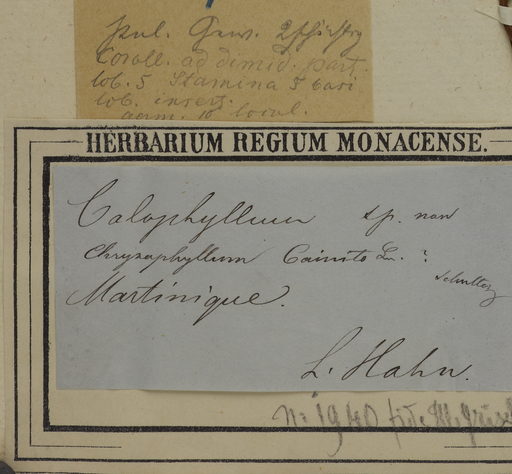 Coroll. ad dimid. part.
lob. 5 Stamina 5 basi
lob. insert.
germ. 10 locul.
HERBARIUM REGIUM MONACENSE.
Calophyllum sp. non
Chrysophyllum Cainito Ln. ?
Schultes
Martinique.
L. Hahn.
No 1940 fide